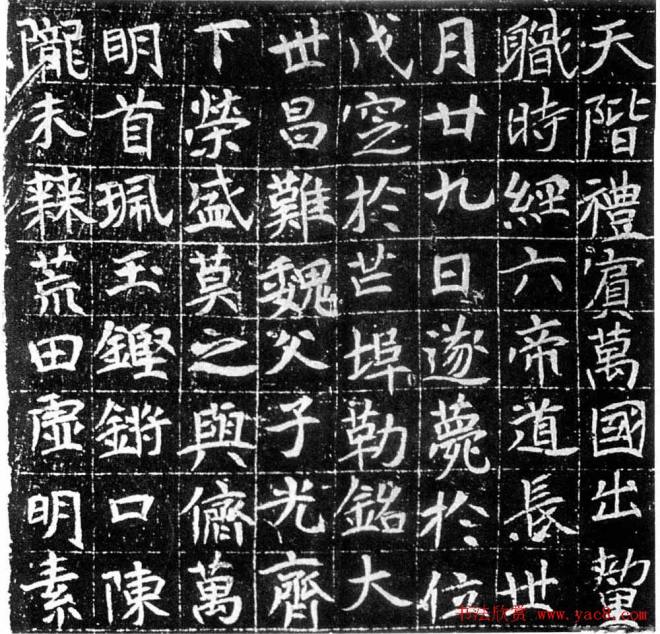 天階禮賓萬國出蕃
職時經六帝道長世
月廿九日遂薨於位
戊窆於芒埠勒銘大
世昌難魏父子光齊
下榮盛莫之與儕萬
明首珮玉鏗鏘口陳
隴未辣荒田虛明素
书法欣赏 www.yac8.com